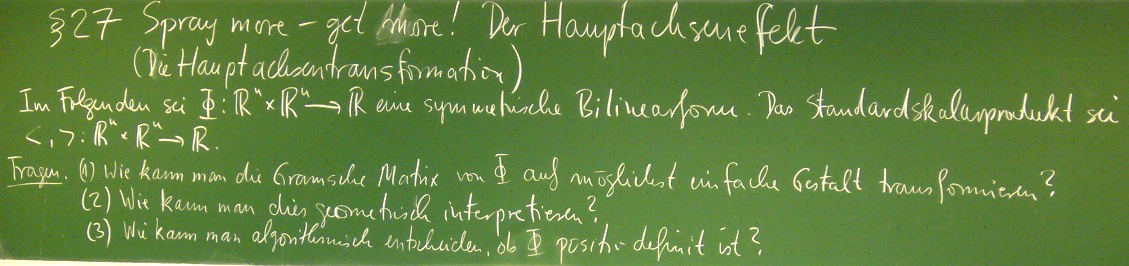 §27 Spray more – get more! Der Hauptachseneffekt
(Die Hauptachsentransformation)
Im Folgenden sei Φ: ℝⁿ × ℝⁿ → ℝ eine symmetrische Bilinearform. Das Standardskalarprodukt sei
< , >: ℝⁿ × ℝⁿ → ℝ.
Fragen. (1) Wie kann man die Gramsche Matrix von Φ auf möglichst einfache Gestalt transformieren?
(2) Wie kann man dies geometrisch interpretieren?
(3) Wie kann man algorithmisch entscheiden, ob Φ positiv definit ist?